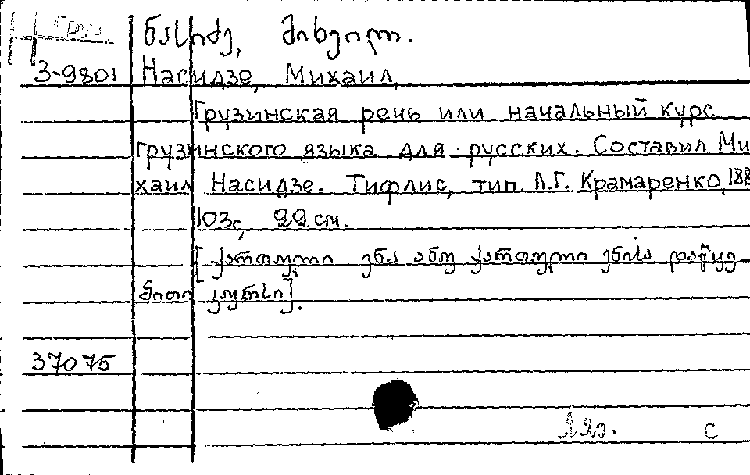 ნასიძე, მიხეილ.
З-9801 Насидзе, Михаил,
Грузинская речь или начальный курс
грузинского языка для русских. Составил Ми
хаил Насидзе. Тифлис, тип. Л.Г. Крамаренко, 188
103с, 22 см.
[ქართული ენა ანუ ქართული ენის დაწყე-
ბითი კურსი].
37075
с